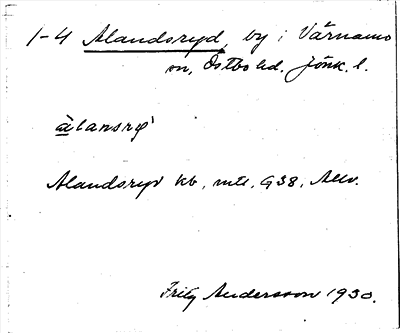 1-4 Alandsryd, by i Värnamo
sn, Östbo hd. Jönk. l.
àlansryˈ
Alandsryd kb, mtl, G38, Allm.
Fritz Andersson 1930.